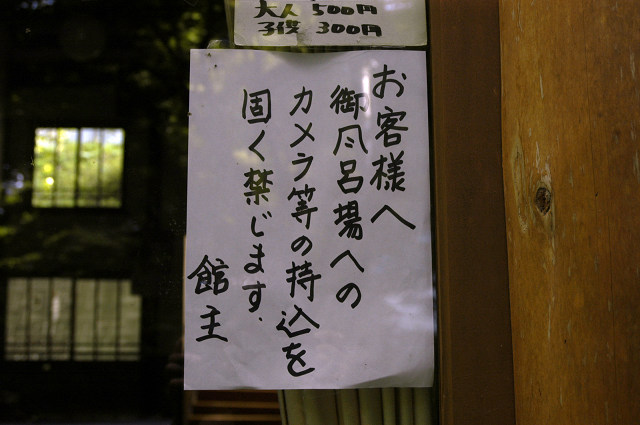 大人 500円
子供 300円
お客様へ
御風呂場への
カメラ等の持込を
固く禁じます.
館主